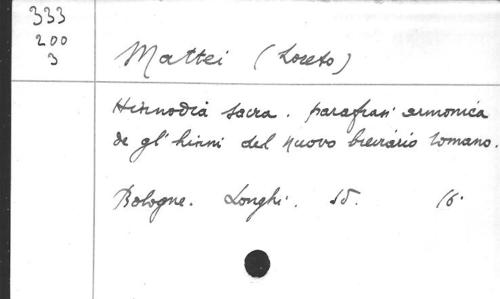 333
200
3
Mattei (Loreto)
Hinnodia sacra. parafrasi armonica
de gl' hinni del nuovo breviario romano.
Bologne. Longhi. sd. 16.